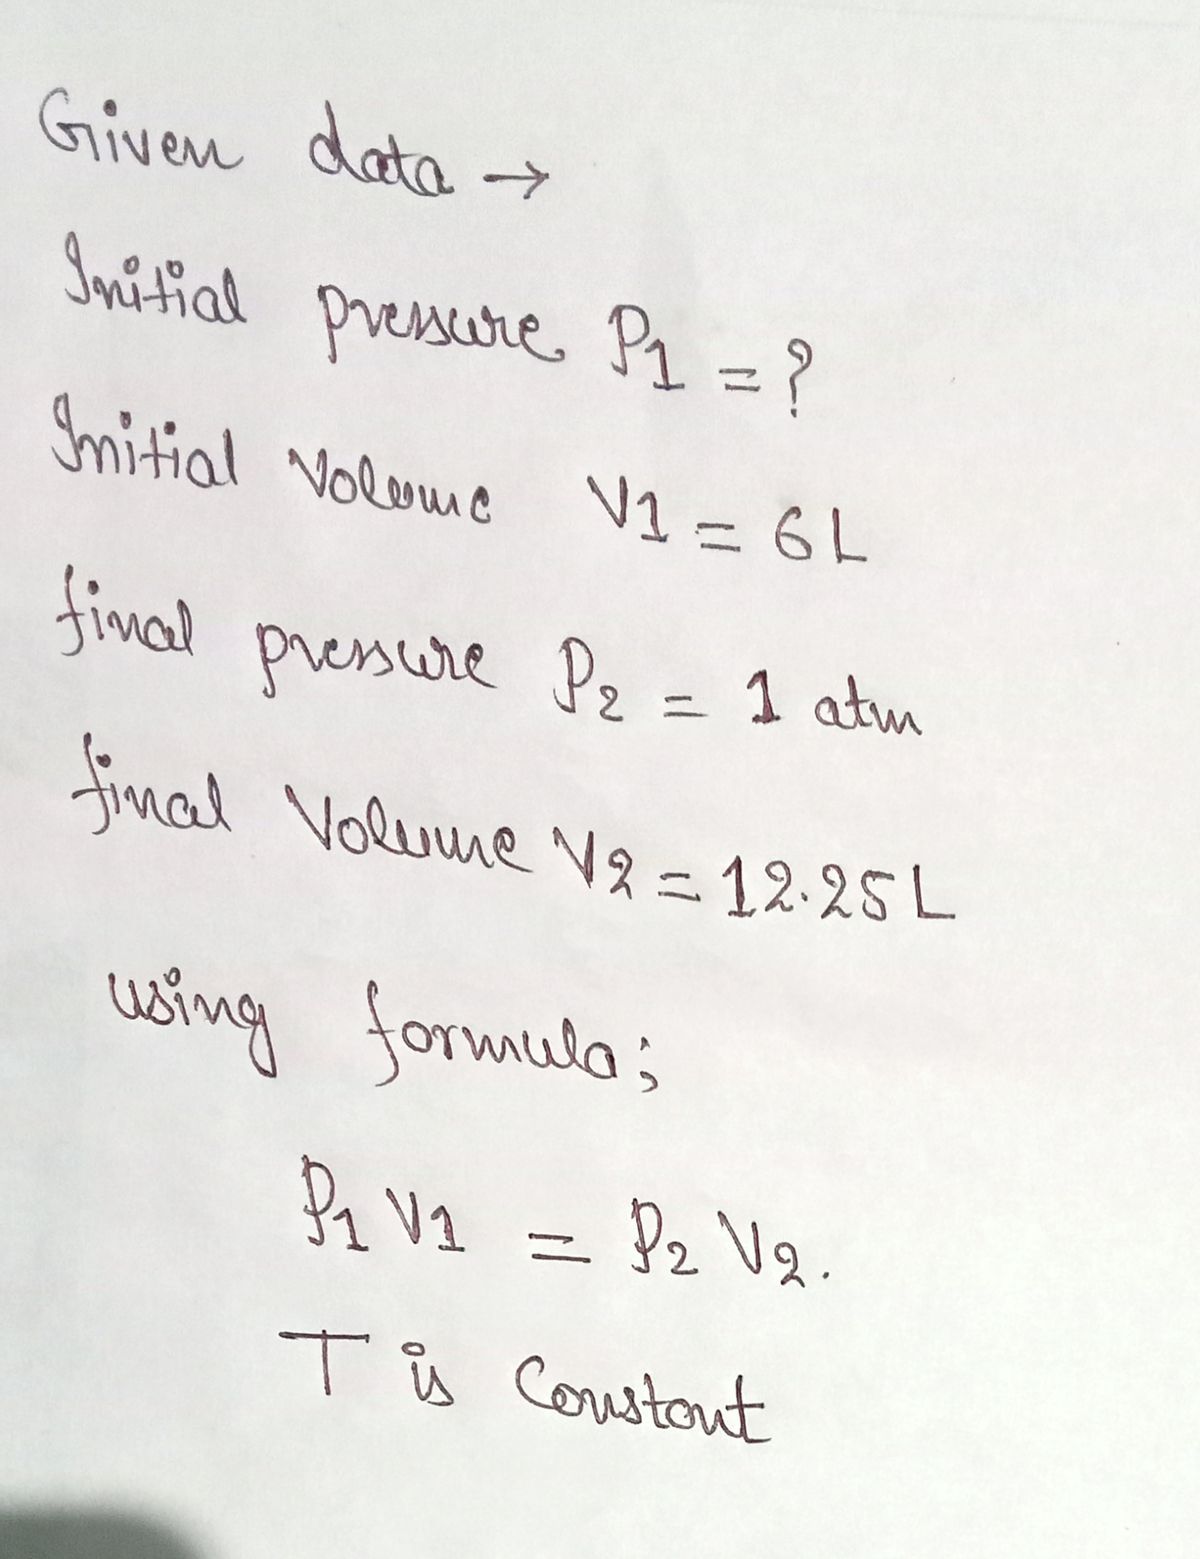 Given data →
Initial pressure P1 = ?
Initial Volume V1 = 6 L
final pressure P2 = 1 atm
final Volume V2 = 12.25 L
using formula;
P1 V1 = P2 V2.
T is Constant